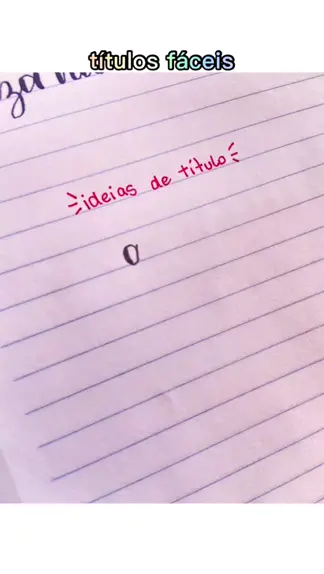 títulos fáceis
ideias de título
a